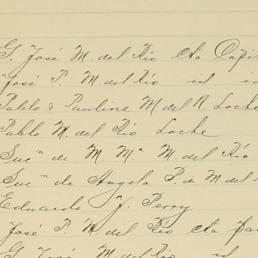 G. José M. del Rio cta Capi
José P. M. del Rio id id
Pablo & Pauline M del R. Locke
Pablo M. del Rio Locke
Sucⁿ de M. Mª M. del Rio
Sucⁿ de Angela P. de M del
Eduardo J. Perry
José P. M. del Rio cta Par
G. José M. del Rio id